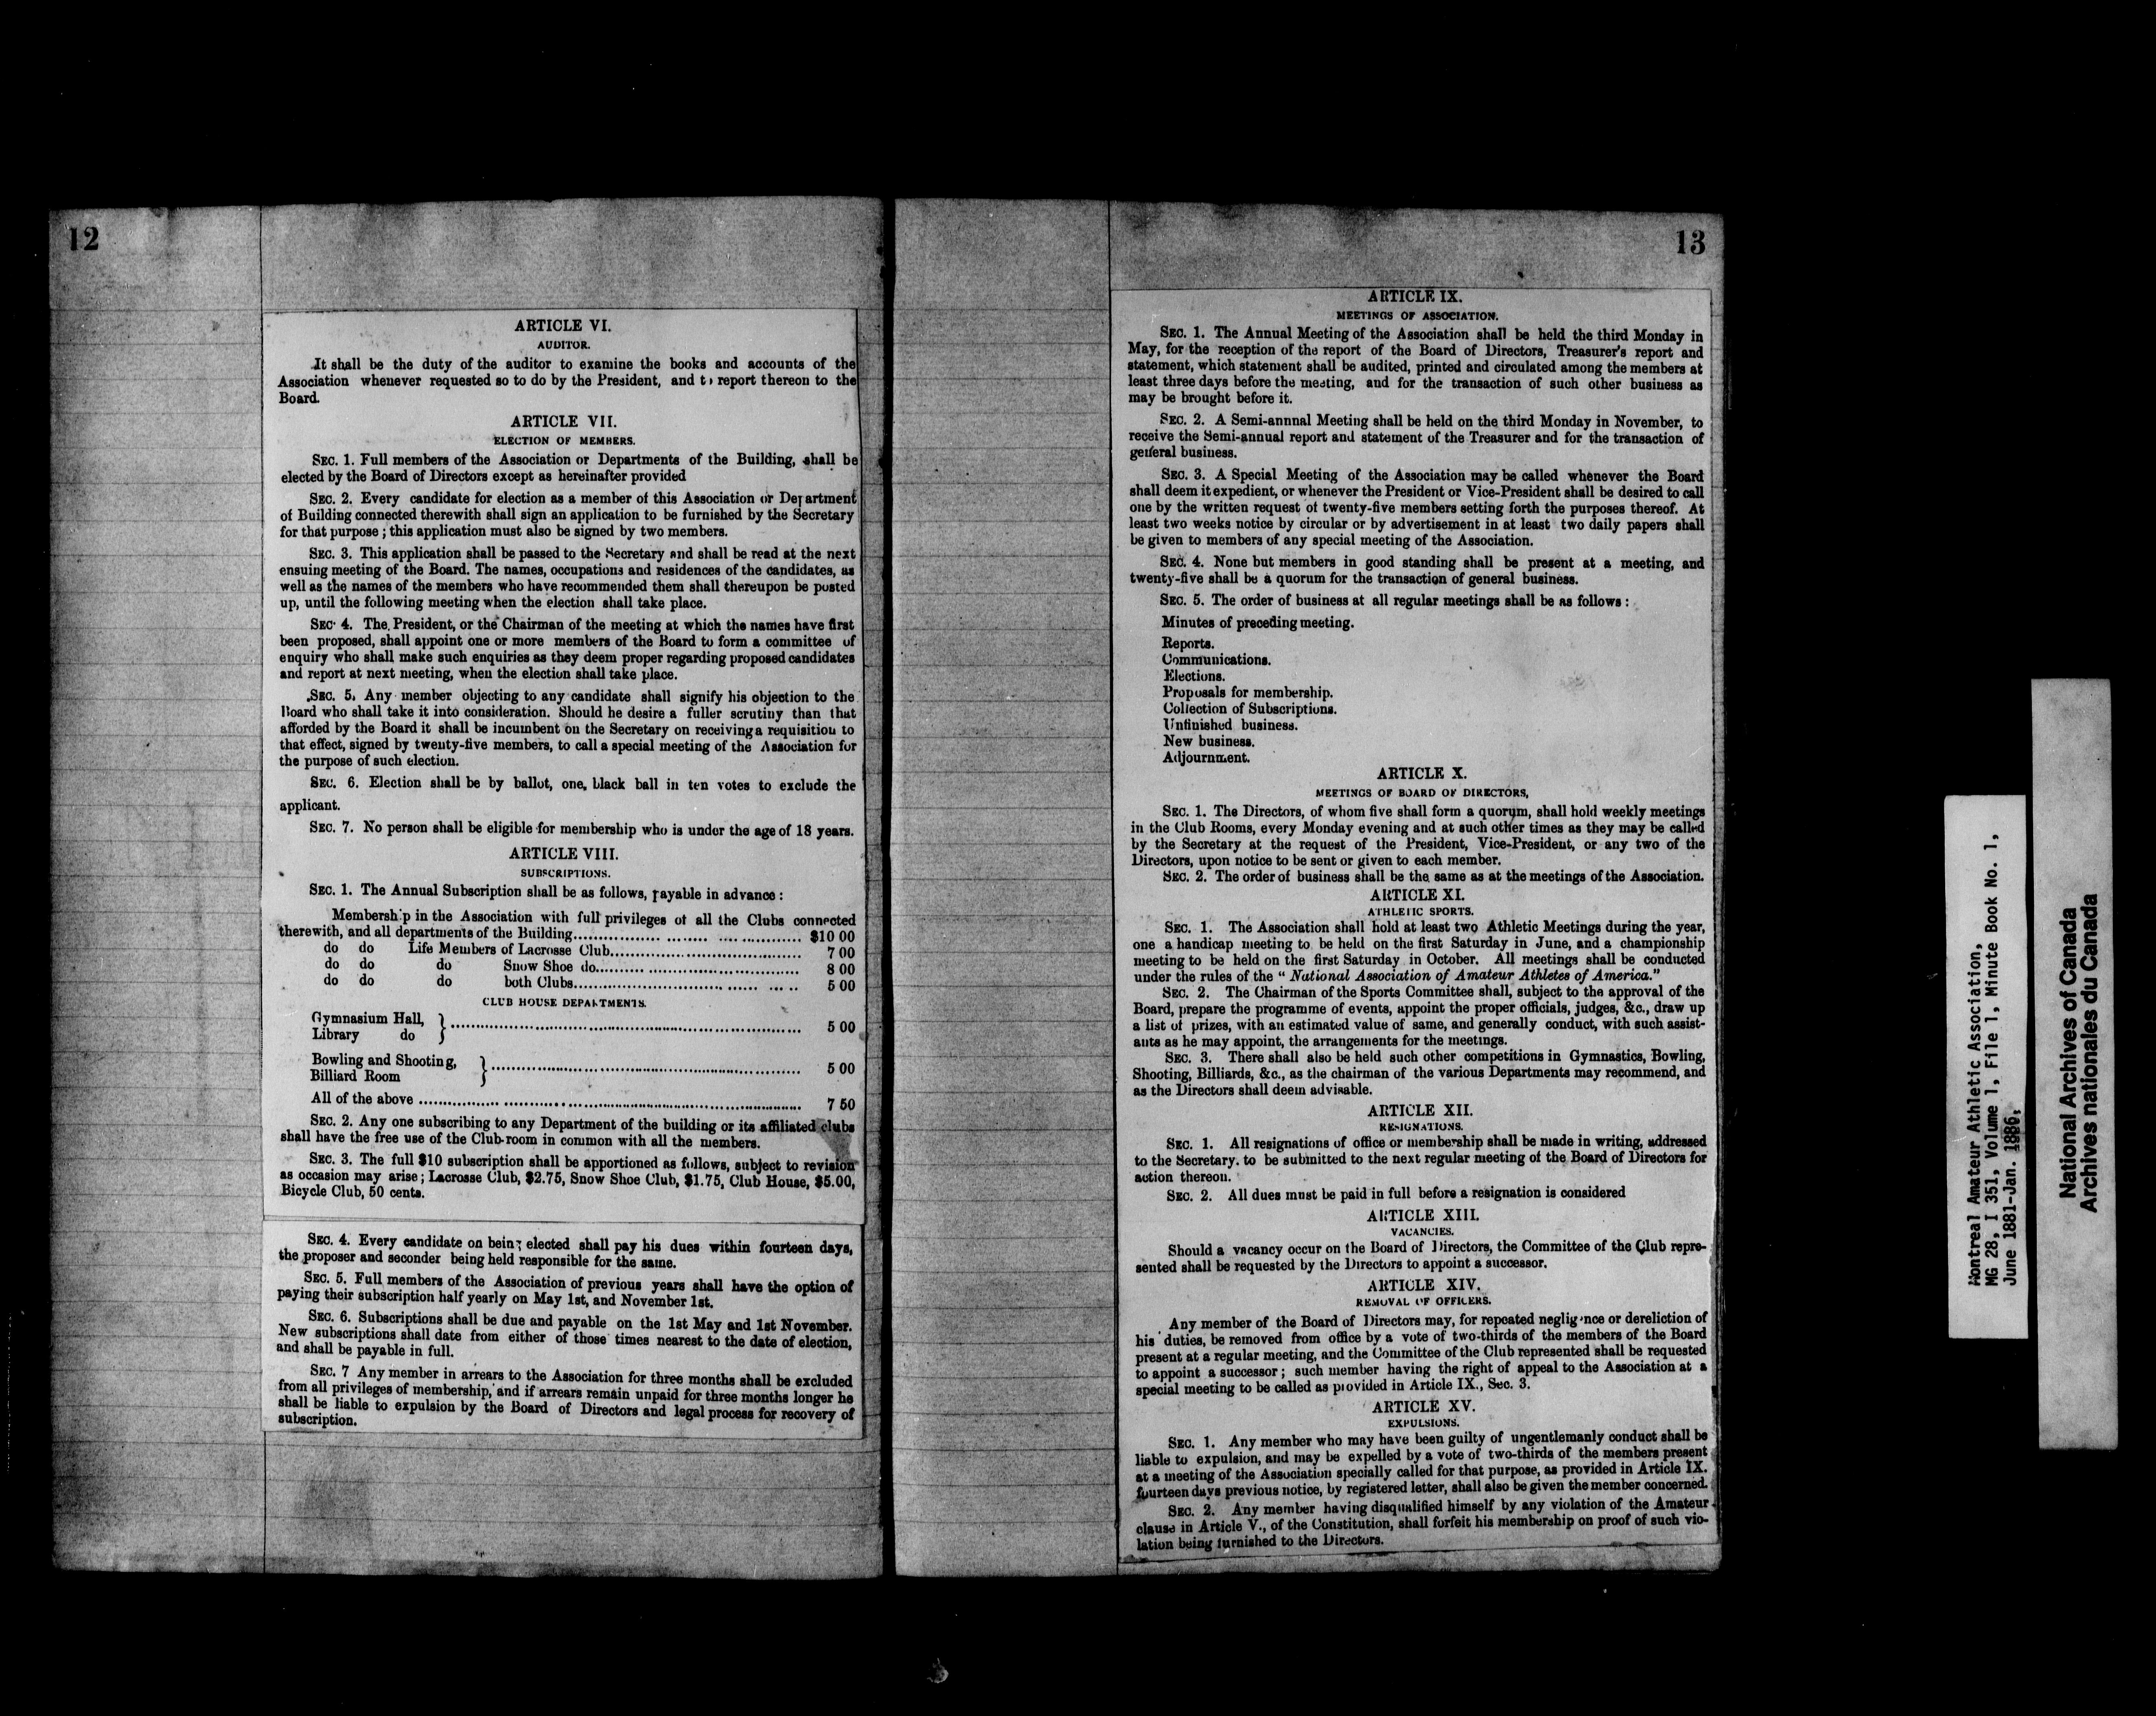 12
ARTICLE VI.
AUDITOR.
It shall be the duty of the auditor to examine the books and accounts of the
Association whenever requested so to do by the President, and to report thereon to the
Board.
ARTICLE VII.
ELECTION OF MEMBERS.
SEC. 1. Full members of the Association or Departments of the Building, shall be
elected by the Board of Directors except as hereinafter provided
SEC. 2. Every candidate for election as a member of this Association or Department
of Building connected therewith shall sign an application to be furnished by the Secretary
for that purpose ; this application must also be signed by two members.
SEC. 3. This application shall be passed to the Secretary and shall be read at the next
ensuing meeting of the Board. The names, occupations and residences of the candidates, as
well as the names of the members who have recommended them shall thereupon be posted
up, until the following meeting when the election shall take place.
SEC. 4. The President, or the Chairman of the meeting at which the names have first
been proposed, shall appoint one or more members of the Board to form a committee of
enquiry who shall make such enquiries as they deem proper regarding proposed candidates
and report at next meeting, when the election shall take place.
SEC. 5. Any member objecting to any candidate shall signify his objection to the
Board who shall take it into consideration. Should he desire a fuller scrutiny than that
afforded by the Board it shall be incumbent on the Secretary on receiving a requisition to
that effect, signed by twenty-five members, to call a special meeting of the Association for
the purpose of such election.
SEC. 6. Election shall be by ballot, one, black ball in ten votes to exclude the
applicant.
SEC. 7. No person shall be eligible for membership who is under the age of 18 years.
ARTICLE VIII.
SUBSCRIPTIONS.
SEC. 1. The Annual Subscription shall be as follows, payable in advance :
Membership in the Association with full privileges of all the Clubs connected
therewith, and all departments of the Building........................ $10 00
do do Life Members of Lacrosse Club........................ 7 00
do do do Snow Shoe do........................ 8 00
do do do both Clubs........................ 5 00
CLUB HOUSE DEPARTMENTS.
Gymnasium Hall,
Library do } ........................ 5 00
Bowling and Shooting,
Billiard Room } ........................ 5 00
All of the above ........................ 7 50
SEC. 2. Any one subscribing to any Department of the building or its affiliated clubs
shall have the free use of the Club-room in common with all the members.
SEC. 3. The full $10 subscription shall be apportioned as follows, subject to revision
as occasion may arise ; Lacrosse Club, $2.75, Snow Shoe Club, $1.75, Club House, $5.00,
Bicycle Club, 50 cents.
SEC. 4. Every candidate on being elected shall pay his dues within fourteen days,
the proposer and seconder being held responsible for the same.
SEC. 5. Full members of the Association of previous years shall have the option of
paying their subscription half yearly on May 1st, and November 1st.
SEC. 6. Subscriptions shall be due and payable on the 1st May and 1st November.
New subscriptions shall date from either of those times nearest to the date of election,
and shall be payable in full.
SEC. 7 Any member in arrears to the Association for three months shall be excluded
from all privileges of membership, and if arrears remain unpaid for three months longer he
shall be liable to expulsion by the Board of Directors and legal process for recovery of
subscription.
13
ARTICLE IX.
MEETINGS OF ASSOCIATION.
SEC. 1. The Annual Meeting of the Association shall be held the third Monday in
May, for the reception of the report of the Board of Directors, Treasurer's report and
statement, which statement shall be audited, printed and circulated among the members at
least three days before the meeting, and for the transaction of such other business as
may be brought before it.
SEC. 2. A Semi-annnal Meeting shall be held on the third Monday in November, to
receive the Semi-annual report and statement of the Treasurer and for the transaction of
general business.
SEC. 3. A Special Meeting of the Association may be called whenever the Board
shall deem it expedient, or whenever the President or Vice-President shall be desired to call
one by the written request of twenty-five members setting forth the purposes thereof. At
least two weeks notice by circular or by advertisement in at least two daily papers shall
be given to members of any special meeting of the Association.
SEC. 4. None but members in good standing shall be present at a meeting, and
twenty-five shall be a quorum for the transaction of general business.
SEC. 5. The order of business at all regular meetings shall be as follows :
Minutes of preceding meeting.
Reports.
Communications.
Elections.
Proposals for membership.
Collection of Subscriptions.
Unfinished business.
New business.
Adjournment.
ARTICLE X.
MEETINGS OF BOARD OF DIRECTORS,
SEC. 1. The Directors, of whom five shall form a quorum, shall hold weekly meetings
in the Club Rooms, every Monday evening and at such other times as they may be called
by the Secretary at the request of the President, Vice-President, or any two of the
Directors, upon notice to be sent or given to each member.
SEC. 2. The order of business shall be the same as at the meetings of the Association.
ARTICLE XI.
ATHLETIC SPORTS.
SEC. 1. The Association shall hold at least two Athletic Meetings during the year,
one a handicap meeting to be held on the first Saturday in June, and a championship
meeting to be held on the first Saturday in October. All meetings shall be conducted
under the rules of the " National Association of Amateur Athletes of America."
SEC. 2. The Chairman of the Sports Committee shall, subject to the approval of the
Board, prepare the programme of events, appoint the proper officials, judges, &c., draw up
a list of prizes, with an estimated value of same, and generally conduct, with such assist-
ants as he may appoint, the arrangements for the meetings.
SEC. 3. There shall also be held such other competitions in Gymnastics, Bowling,
Shooting, Billiards, &c., as the chairman of the various Departments may recommend, and
as the Directors shall deem advisable.
ARTICLE XII.
RESIGNATIONS.
SEC. 1. All resignations of office or membership shall be made in writing, addressed
to the Secretary. to be submitted to the next regular meeting of the Board of Directors for
action thereon.
SEC. 2. All dues must be paid in full before a resignation is considered
ARTICLE XIII.
VACANCIES.
Should a vacancy occur on the Board of Directors, the Committee of the Club repre-
sented shall be requested by the Directors to appoint a successor.
ARTICLE XIV.
REMOVAL OF OFFICERS.
Any member of the Board of Directors may, for repeated negligence or dereliction of
his duties, be removed from office by a vote of two-thirds of the members of the Board
present at a regular meeting, and the Committee of the Club represented shall be requested
to appoint a successor ; such member having the right of appeal to the Association at a
special meeting to be called as provided in Article IX., Sec. 3.
ARTICLE XV.
EXPULSIONS.
SEC. 1. Any member who may have been guilty of ungentlemanly conduct shall be
liable to expulsion, and may be expelled by a vote of two-thirds of the members present
at a meeting of the Association specially called for that purpose, as provided in Article IX.
fourteen days previous notice, by registered letter, shall also be given the member concerned.
SEC. 2. Any member having disqualified himself by any violation of the Amateur
clause in Article V., of the Constitution, shall forfeit his membership on proof of such vio-
lation being furnished to the Directors.
Montreal Amateur Athletic Association,
MG 28, I 351, Volume 1, File 1, Minute Book No. 1,
June 1881-Jan. 1886.
National Archives of Canada
Archives nationales du Canada